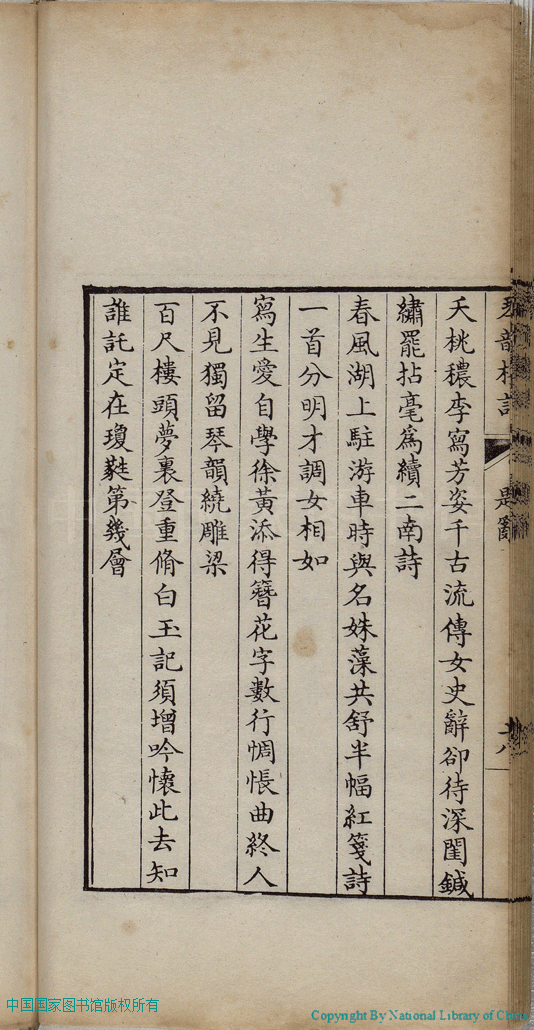 題辭
夭桃穠李寫芳姿千古流傳女史辭卻待深閨鍼
繡罷拈毫爲續二南詩
春風湖上駐游車時與名姝藻共舒半幅紅箋詩
一首分明才調女相如
寫生愛自學徐黃添得簪花字數行惆悵曲終人
不見獨留琴韻繞雕梁
百尺樓頭夢裏登重脩白玉記須增吟懷此去知
誰託定在瓊蕤第幾層
中国国家图书馆版权所有
Copyright By National Library of China